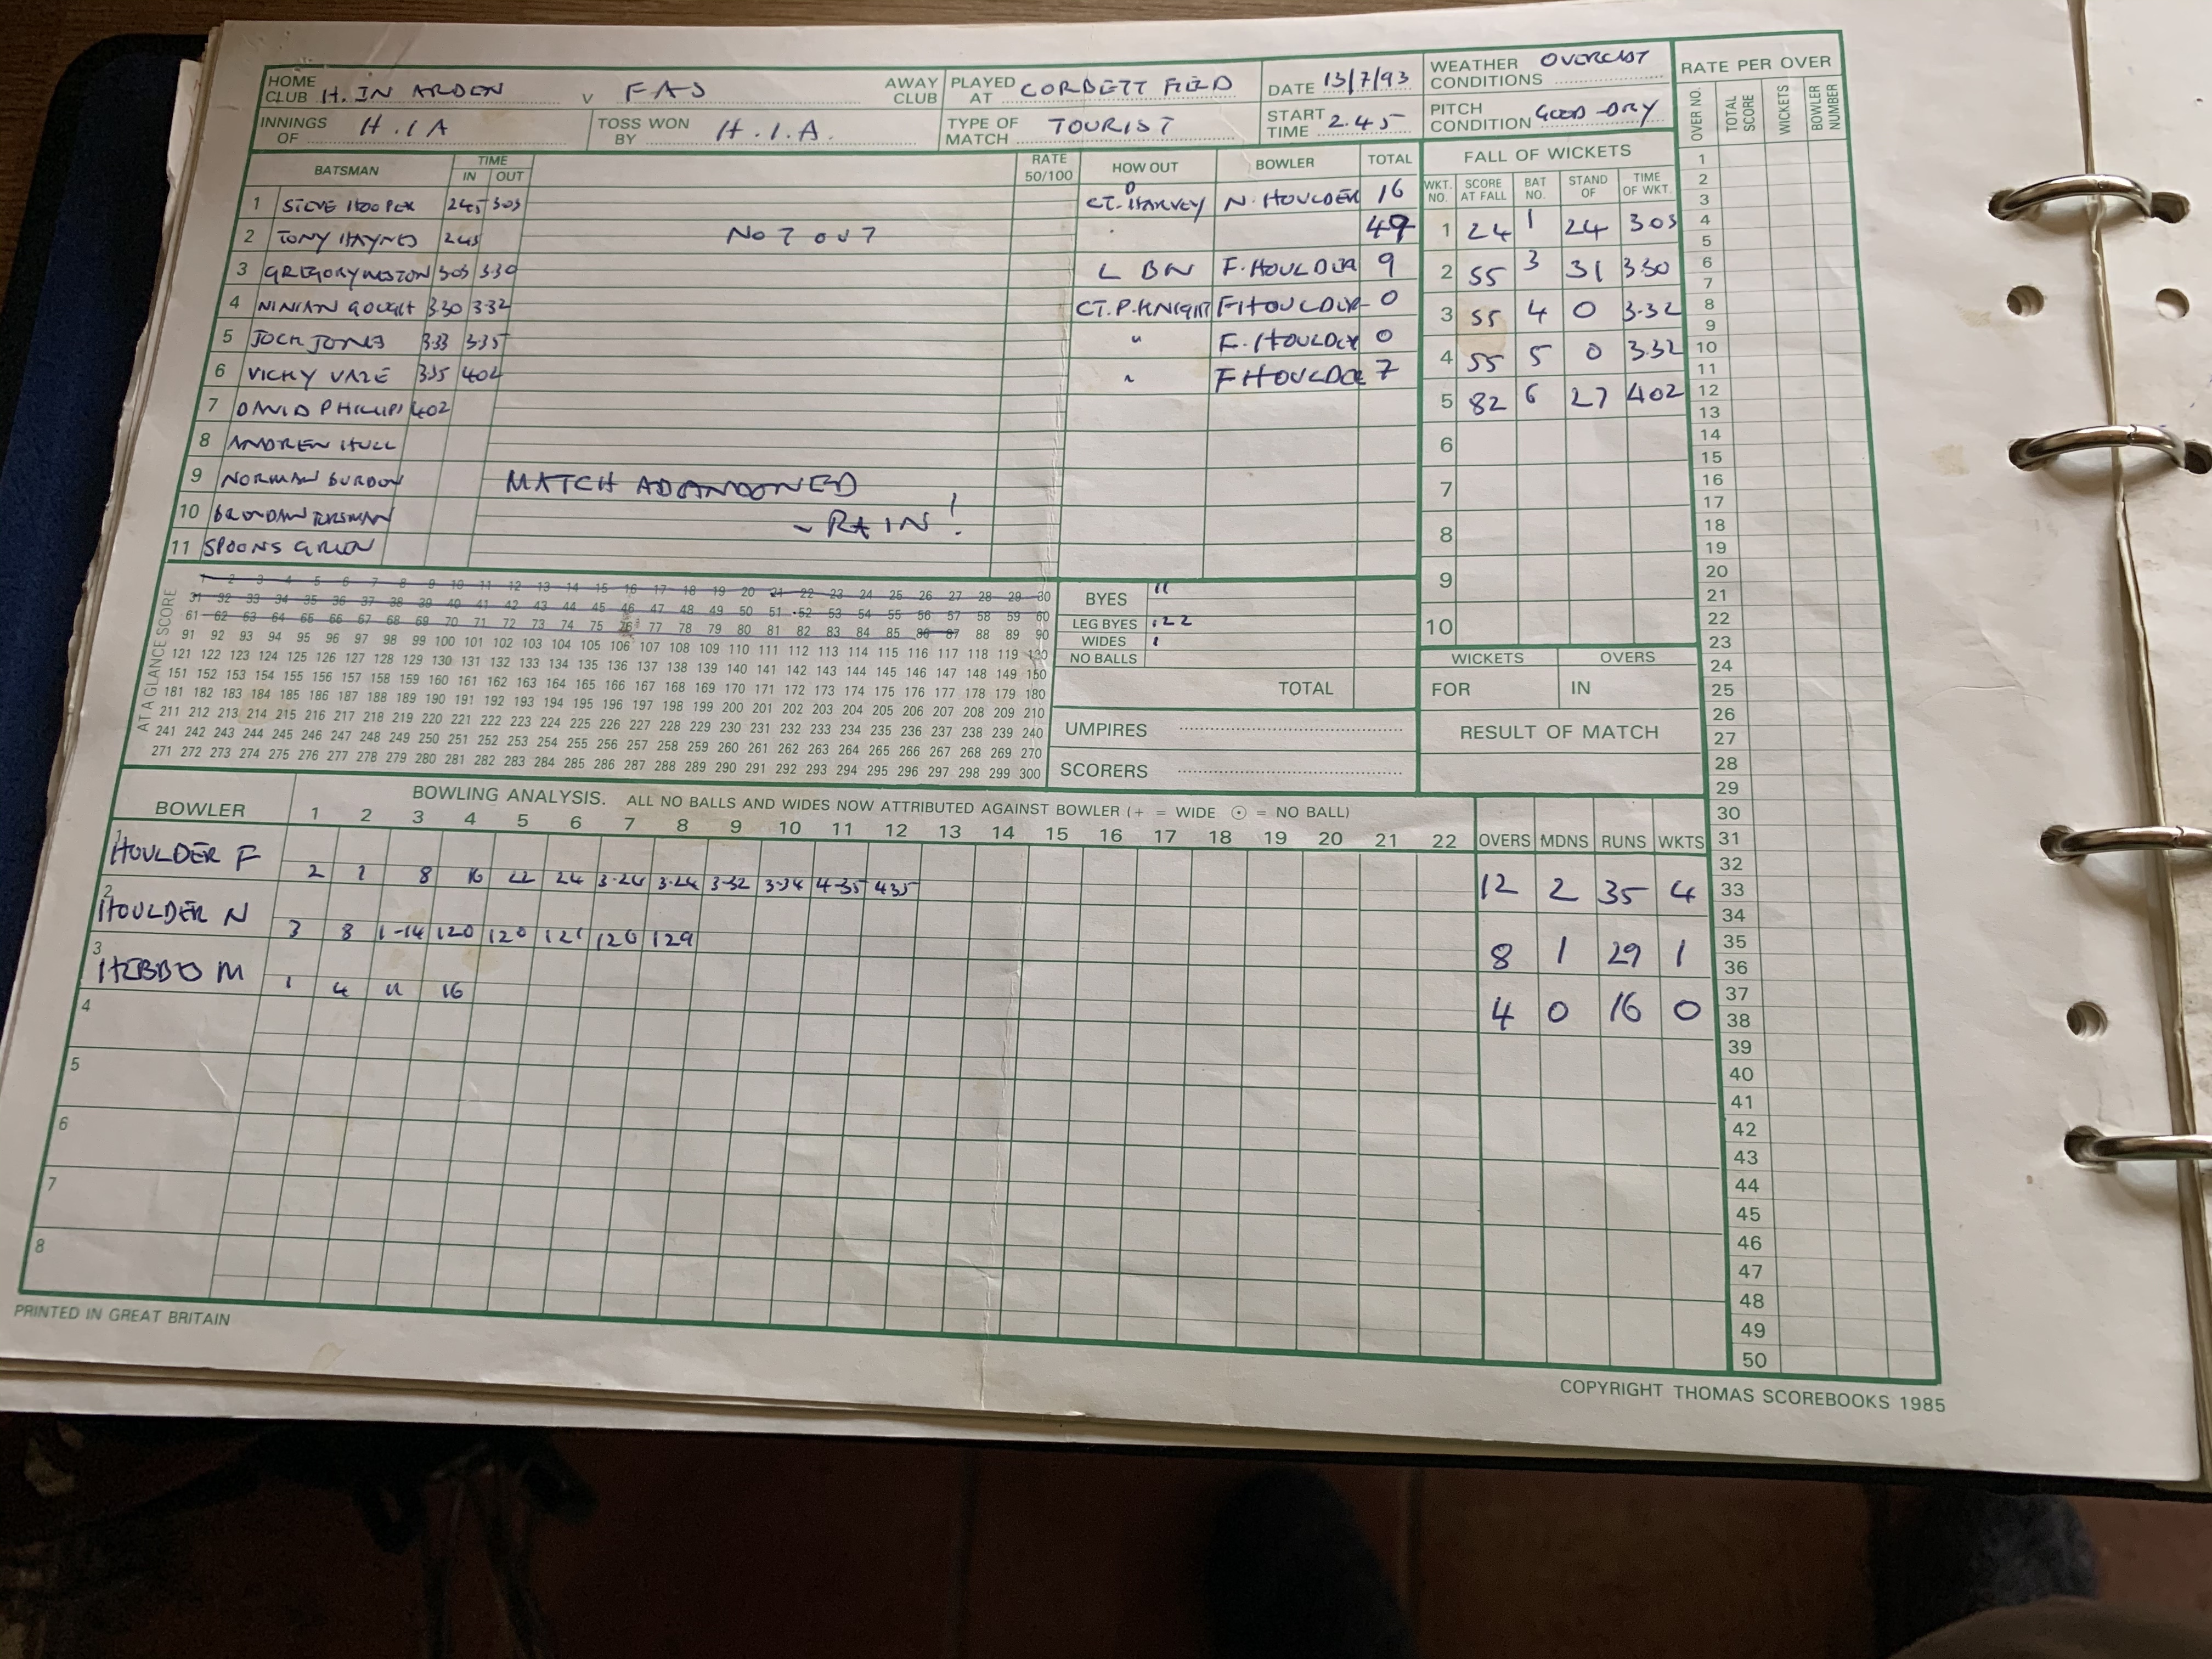 HOME CLUB H. IN ARDEN v FAS AWAY CLUB PLAYED AT CORBETT FIELD DATE 13/7/93 WEATHER CONDITIONS OVERCAST RATE PER OVER
INNINGS OF H.I.A TOSS WON BY H.I.A. TYPE OF MATCH TOURIST START TIME 2.45 PITCH CONDITION GOOD-DRY OVER NO. TOTAL SCORE WICKETS BOWLER NUMBER
BATSMAN TIME IN OUT RATE 50/100 HOW OUT BOWLER TOTAL FALL OF WICKETS
WKT. NO. SCORE AT FALL BAT NO. STAND OF TIME OF WKT.
1 STEVE HOOPER 245 303 CT. HARVEY N. HOULDER 16
2 TONY HAYNES 245 NOT OUT 49
3 GREGORY WESTON 303 3.30 L BW F. HOULDER 9
4 NINIAN GOUGH 3.30 3.32 CT. P. KNIGHT F HOULDER 0
5 JOCK JONES 3.33 3.35 " F. HOULDER 0
6 VICKY VAZE 335 402 " F HOULDER 7
7 DAVID PHILLIPS 402
8 ANDREW HULL
9 NORMAN BURDON MATCH ABANDONED
10 - RAIN!
11 SPOONS
1 24 1 24 303
2 55 3 31 330
3 55 4 0 3.32
4 55 5 0 3.32
5 82 6 27 402
6
7
8
9
10
AT A GLANCE SCORE
1 2 3 4 5 6 7 8 9 10 11 12 13 14 15 16 17 18 19 20 21 22 23 24 25 26 27 28 29 30
31 32 33 34 35 36 37 38 39 40 41 42 43 44 45 46 47 48 49 50 51 52 53 54 55 56 57 58 59 60
61 62 63 64 65 66 67 68 69 70 71 72 73 74 75 76 77 78 79 80 81 82 83 84 85 86 87 88 89 90
91 92 93 94 95 96 97 98 99 100 101 102 103 104 105 106 107 108 109 110 111 112 113 114 115 116 117 118 119 120
121 122 123 124 125 126 127 128 129 130 131 132 133 134 135 136 137 138 139 140 141 142 143 144 145 146 147 148 149 150
151 152 153 154 155 156 157 158 159 160 161 162 163 164 165 166 167 168 169 170 171 172 173 174 175 176 177 178 179 180
181 182 183 184 185 186 187 188 189 190 191 192 193 194 195 196 197 198 199 200 201 202 203 204 205 206 207 208 209 210
211 212 213 214 215 216 217 218 219 220 221 222 223 224 225 226 227 228 229 230 231 232 233 234 235 236 237 238 239 240
241 242 243 244 245 246 247 248 249 250 251 252 253 254 255 256 257 258 259 260 261 262 263 264 265 266 267 268 269 270
271 272 273 274 275 276 277 278 279 280 281 282 283 284 285 286 287 288 289 290 291 292 293 294 295 296 297 298 299 300
BYES 11
LEG BYES 122
WIDES 1
NO BALLS
TOTAL
UMPIRES
SCORERS
WICKETS OVERS
FOR IN
RESULT OF MATCH
BOWLER BOWLING ANALYSIS. ALL NO BALLS AND WIDES NOW ATTRIBUTED AGAINST BOWLER (+ = WIDE ⊙ = NO BALL)
1 2 3 4 5 6 7 8 9 10 11 12 13 14 15 16 17 18 19 20 21 22 OVERS MDNS RUNS WKTS
1 HOULDER F 2 8 16 22 24 3-24 3-24 3-32 3-34 4-35 435 12 2 35 4
2 HOULDER N 3 8 1-14 120 120 121 126 129 8 1 29 1
3 M 1 4 11 16 4 0 16 0
4
5
6
7
8
1
2
3
4
5
6
7
8
9
10
11
12
13
14
15
16
17
18
19
20
21
22
23
24
25
26
27
28
29
30
31
32
33
34
35
36
37
38
39
40
41
42
43
44
45
46
47
48
49
50
PRINTED IN GREAT BRITAIN
COPYRIGHT THOMAS SCOREBOOKS 1985